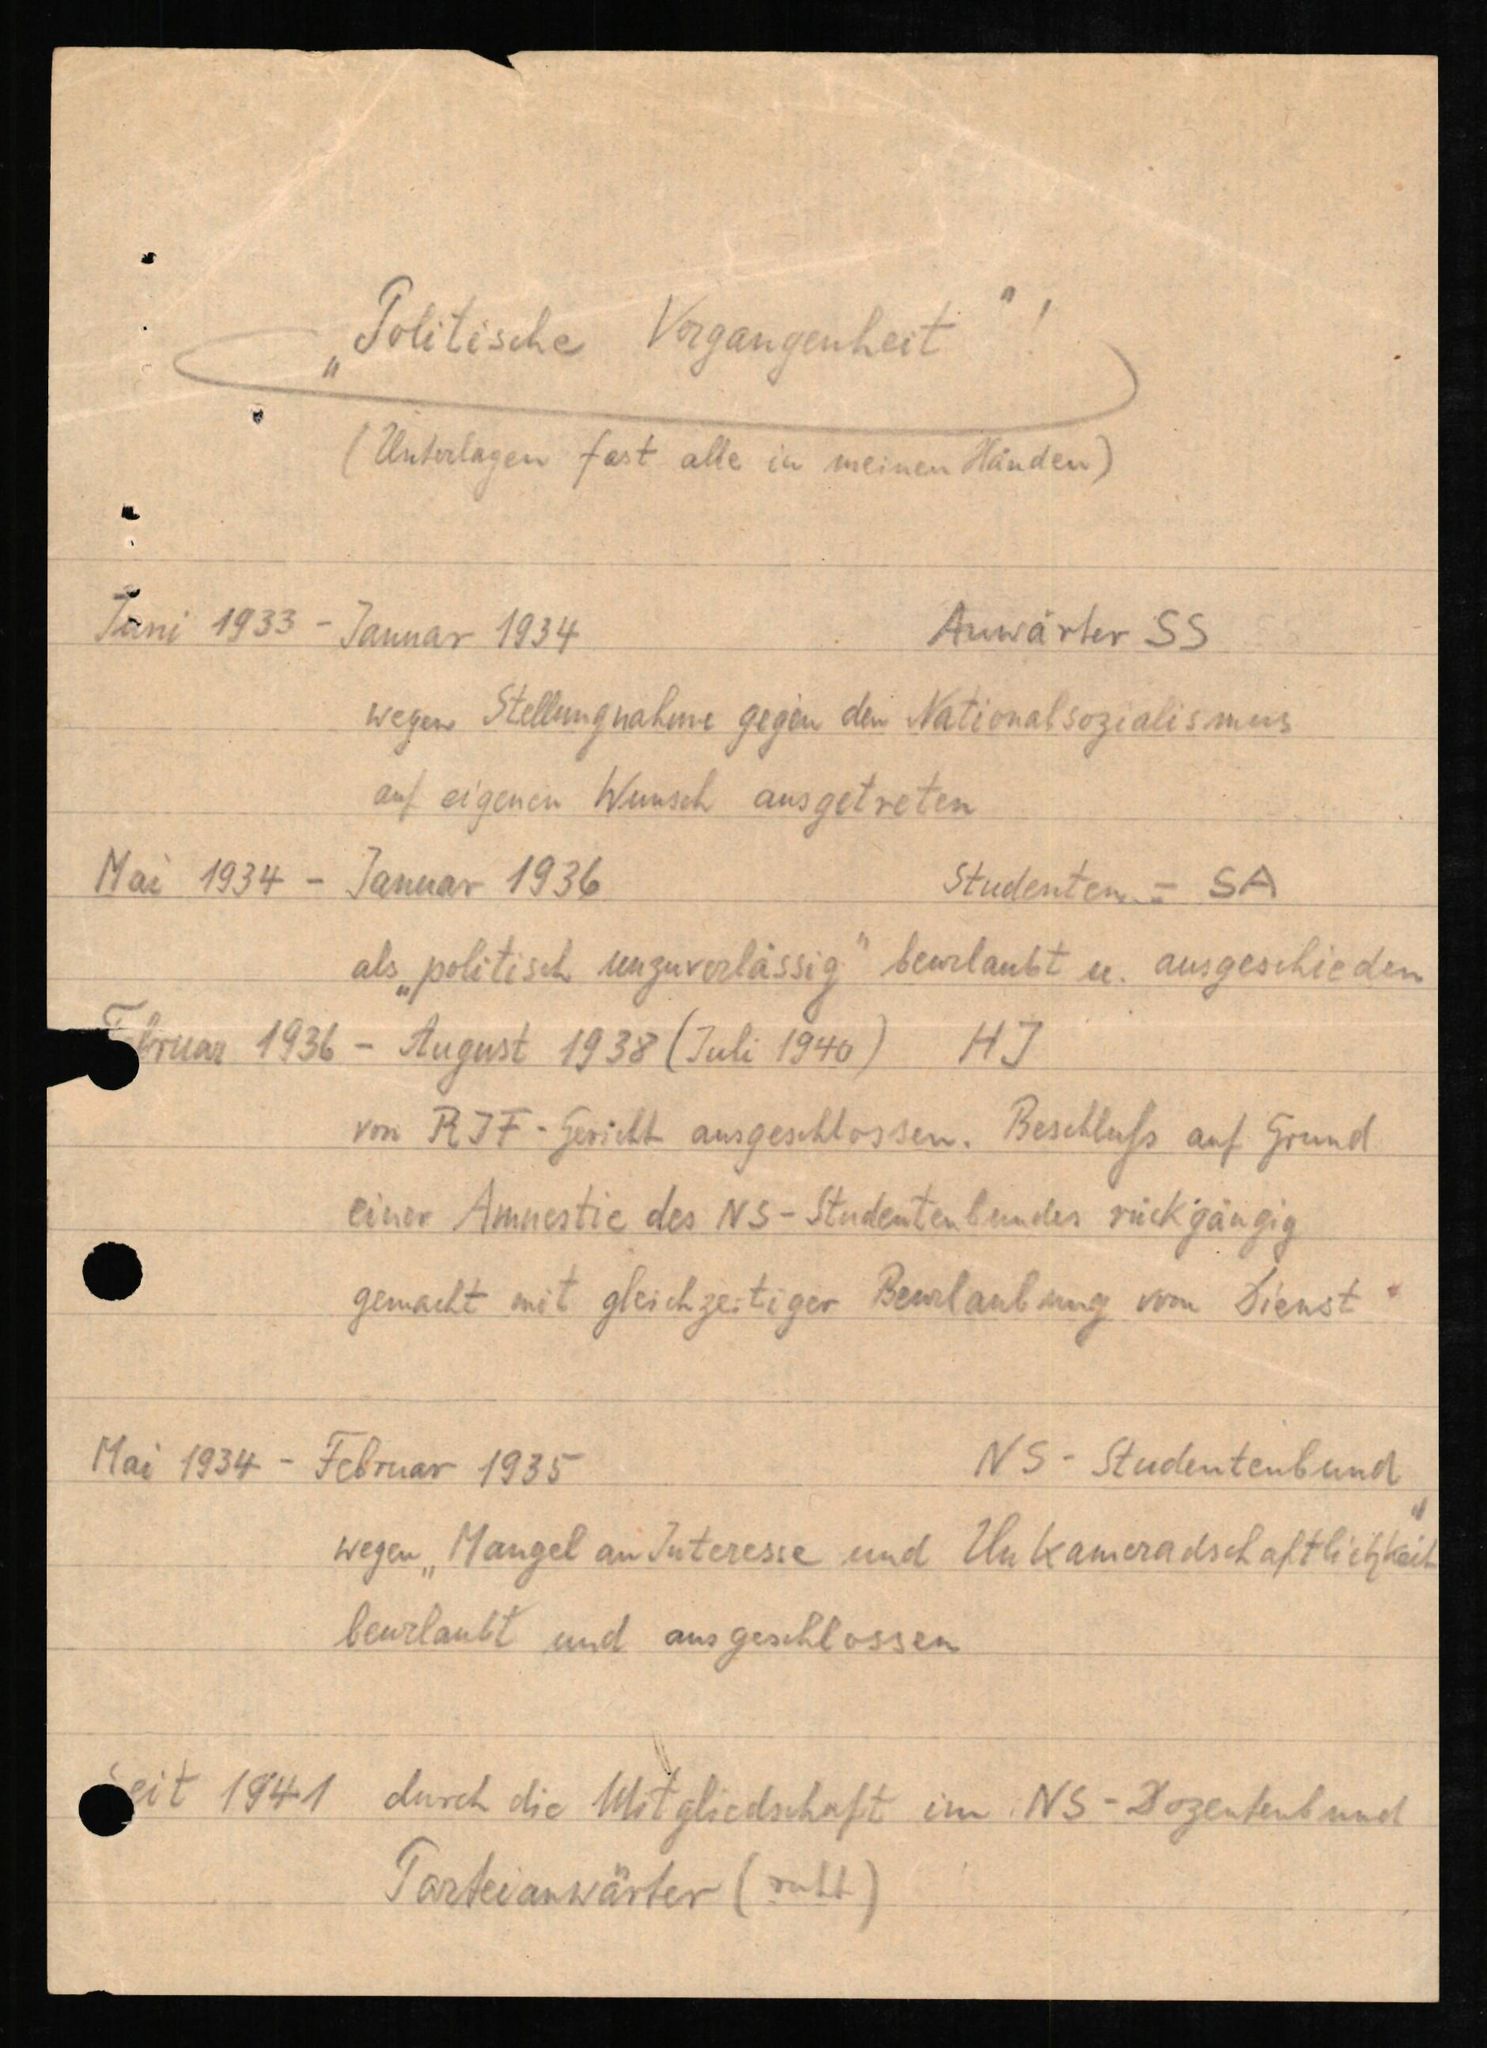 „Politische Vergangenheit"!
(Unterlagen fast alle in meinen Händen)
Juni 1933 - Januar 1934 Anwärter SS
wegen Stellungnahme gegen den Nationalsozialismus
auf eigenen Wunsch ausgetreten
Mai 1934 - Januar 1936 Studenten - SA
als „politisch unzuverlässig" beurlaubt u. ausgeschieden
Februar 1936 - August 1938 (Juli 1940) HJ
von RJF-Gericht ausgeschlossen. Beschluß auf Grund
einer Amnestie des NS-Studentenbundes rückgängig
gemacht mit gleichzeitiger Beurlaubung vom Dienst
Mai 1934 - Februar 1935 NS-Studentenbund
wegen „Mangel an Interesse und Unkameradschaftlichkeit"
beurlaubt und ausgeschlossen
Seit 1941 durch die Mitgliedschaft im NS-Dozentenbund
Parteianwärter (ruht)